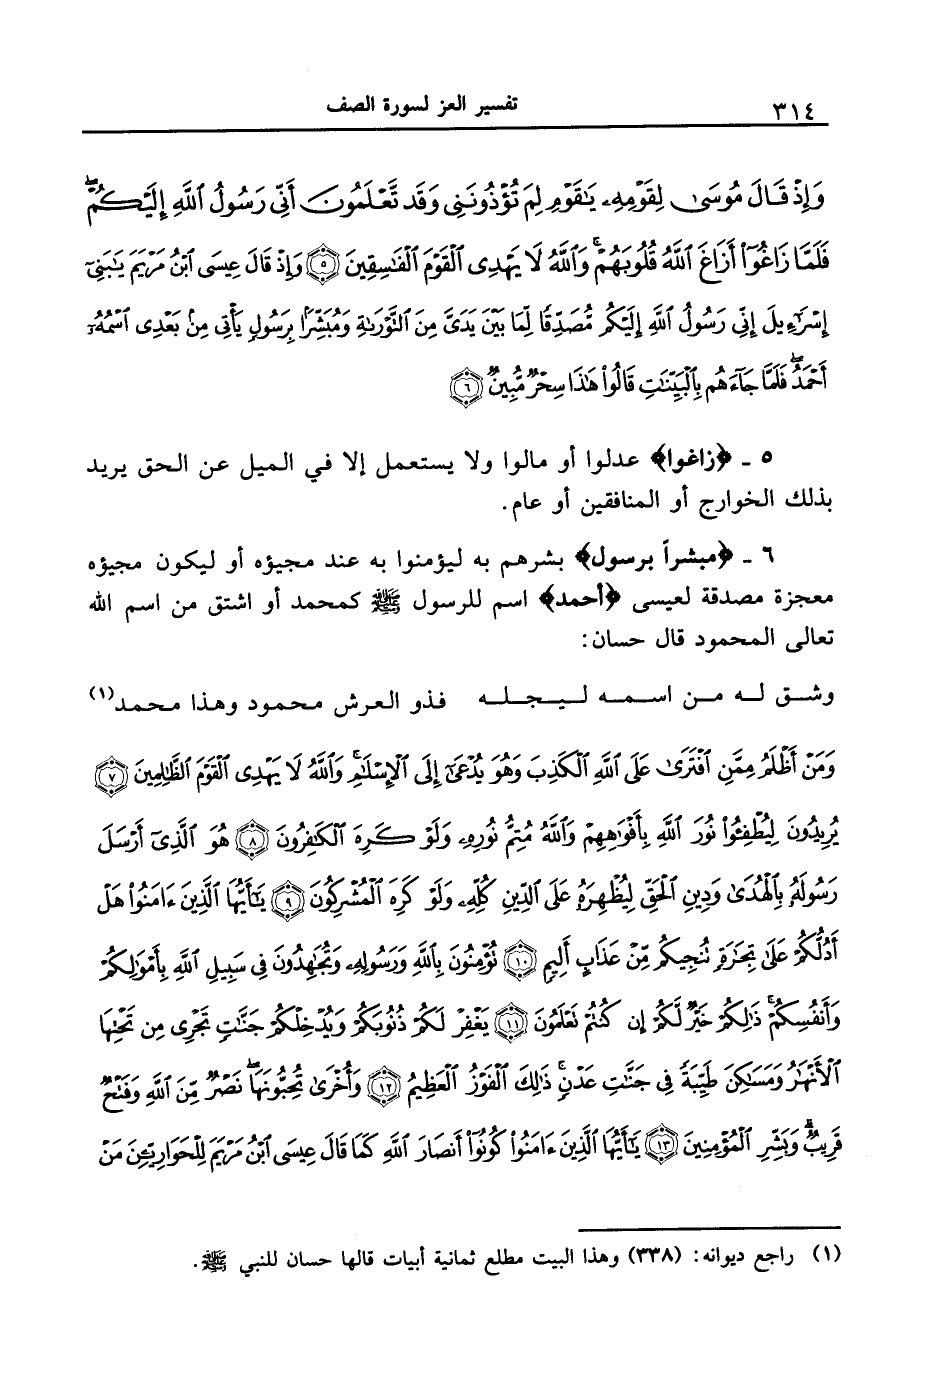 ٣١٤ تفسير العز لسورة الصف
وَإِذْ قَالَ مُوسَىٰ لِقَوْمِهِۦ يَٰقَوْمِ لِمَ تُؤْذُونَنِى وَقَد تَّعْلَمُونَ أَنِّى رَسُولُ ٱللَّهِ إِلَيْكُمْ ۖ
فَلَمَّا زَاغُوٓا۟ أَزَاغَ ٱللَّهُ قُلُوبَهُمْ ۚ وَٱللَّهُ لَا يَهْدِى ٱلْقَوْمَ ٱلْفَٰسِقِينَ ٥ وَإِذْ قَالَ عِيسَى ٱبْنُ مَرْيَمَ يَٰبَنِىٓ
إِسْرَٰٓءِيلَ إِنِّى رَسُولُ ٱللَّهِ إِلَيْكُم مُّصَدِّقًا لِّمَا بَيْنَ يَدَىَّ مِنَ ٱلتَّوْرَىٰةِ وَمُبَشِّرًۢا بِرَسُولٍ يَأْتِى مِنۢ بَعْدِى ٱسْمُهُۥٓ
أَحْمَدُ ۖ فَلَمَّا جَآءَهُم بِٱلْبَيِّنَٰتِ قَالُوا۟ هَٰذَا سِحْرٌ مُّبِينٌ ٦
٥ ـ ﴿زاغوا﴾ عدلوا أو مالوا ولا يستعمل إلا في الميل عن الحق يريد
بذلك الخوارج أو المنافقين أو عام.
٦ ـ ﴿مبشراً برسول﴾ بشرهم به ليؤمنوا به عند مجيؤه أو ليكون مجيؤه
معجزة مصدقة لعيسى ﴿أحمد﴾ اسم للرسول ﷺ كمحمد أو اشتق من اسم الله
تعالى المحمود قال حسان:
وشـق لـه مـن اسـمـه لـيـجـلـه فذو العرش محمود وهذا محمد(١)
وَمَنْ أَظْلَمُ مِمَّنِ ٱفْتَرَىٰ عَلَى ٱللَّهِ ٱلْكَذِبَ وَهُوَ يُدْعَىٰٓ إِلَى ٱلْإِسْلَٰمِ ۚ وَٱللَّهُ لَا يَهْدِى ٱلْقَوْمَ ٱلظَّٰلِمِينَ ٧
يُرِيدُونَ لِيُطْفِـُٔوا۟ نُورَ ٱللَّهِ بِأَفْوَٰهِهِمْ وَٱللَّهُ مُتِمُّ نُورِهِۦ وَلَوْ كَرِهَ ٱلْكَٰفِرُونَ ٨ هُوَ ٱلَّذِىٓ أَرْسَلَ
رَسُولَهُۥ بِٱلْهُدَىٰ وَدِينِ ٱلْحَقِّ لِيُظْهِرَهُۥ عَلَى ٱلدِّينِ كُلِّهِۦ وَلَوْ كَرِهَ ٱلْمُشْرِكُونَ ٩ يَٰٓأَيُّهَا ٱلَّذِينَ ءَامَنُوا۟ هَلْ
أَدُلُّكُمْ عَلَىٰ تِجَٰرَةٍ تُنجِيكُم مِّنْ عَذَابٍ أَلِيمٍ ١٠ تُؤْمِنُونَ بِٱللَّهِ وَرَسُولِهِۦ وَتُجَٰهِدُونَ فِى سَبِيلِ ٱللَّهِ بِأَمْوَٰلِكُمْ
وَأَنفُسِكُمْ ۚ ذَٰلِكُمْ خَيْرٌ لَّكُمْ إِن كُنتُمْ تَعْلَمُونَ ١١ يَغْفِرْ لَكُمْ ذُنُوبَكُمْ وَيُدْخِلْكُمْ جَنَّٰتٍ تَجْرِى مِن تَحْتِهَا
ٱلْأَنْهَٰرُ وَمَسَٰكِنَ طَيِّبَةً فِى جَنَّٰتِ عَدْنٍ ۚ ذَٰلِكَ ٱلْفَوْزُ ٱلْعَظِيمُ ١٢ وَأُخْرَىٰ تُحِبُّونَهَا ۖ نَصْرٌ مِّنَ ٱللَّهِ وَفَتْحٌ
قَرِيبٌ ۗ وَبَشِّرِ ٱلْمُؤْمِنِينَ ١٣ يَٰٓأَيُّهَا ٱلَّذِينَ ءَامَنُوا۟ كُونُوٓا۟ أَنصَارَ ٱللَّهِ كَمَا قَالَ عِيسَى ٱبْنُ مَرْيَمَ لِلْحَوَارِيِّـۧنَ مَنْ
(١) راجع ديوانه: (٣٣٨) وهذا البيت مطلع ثمانية أبيات قالها حسان للنبي ﷺ.